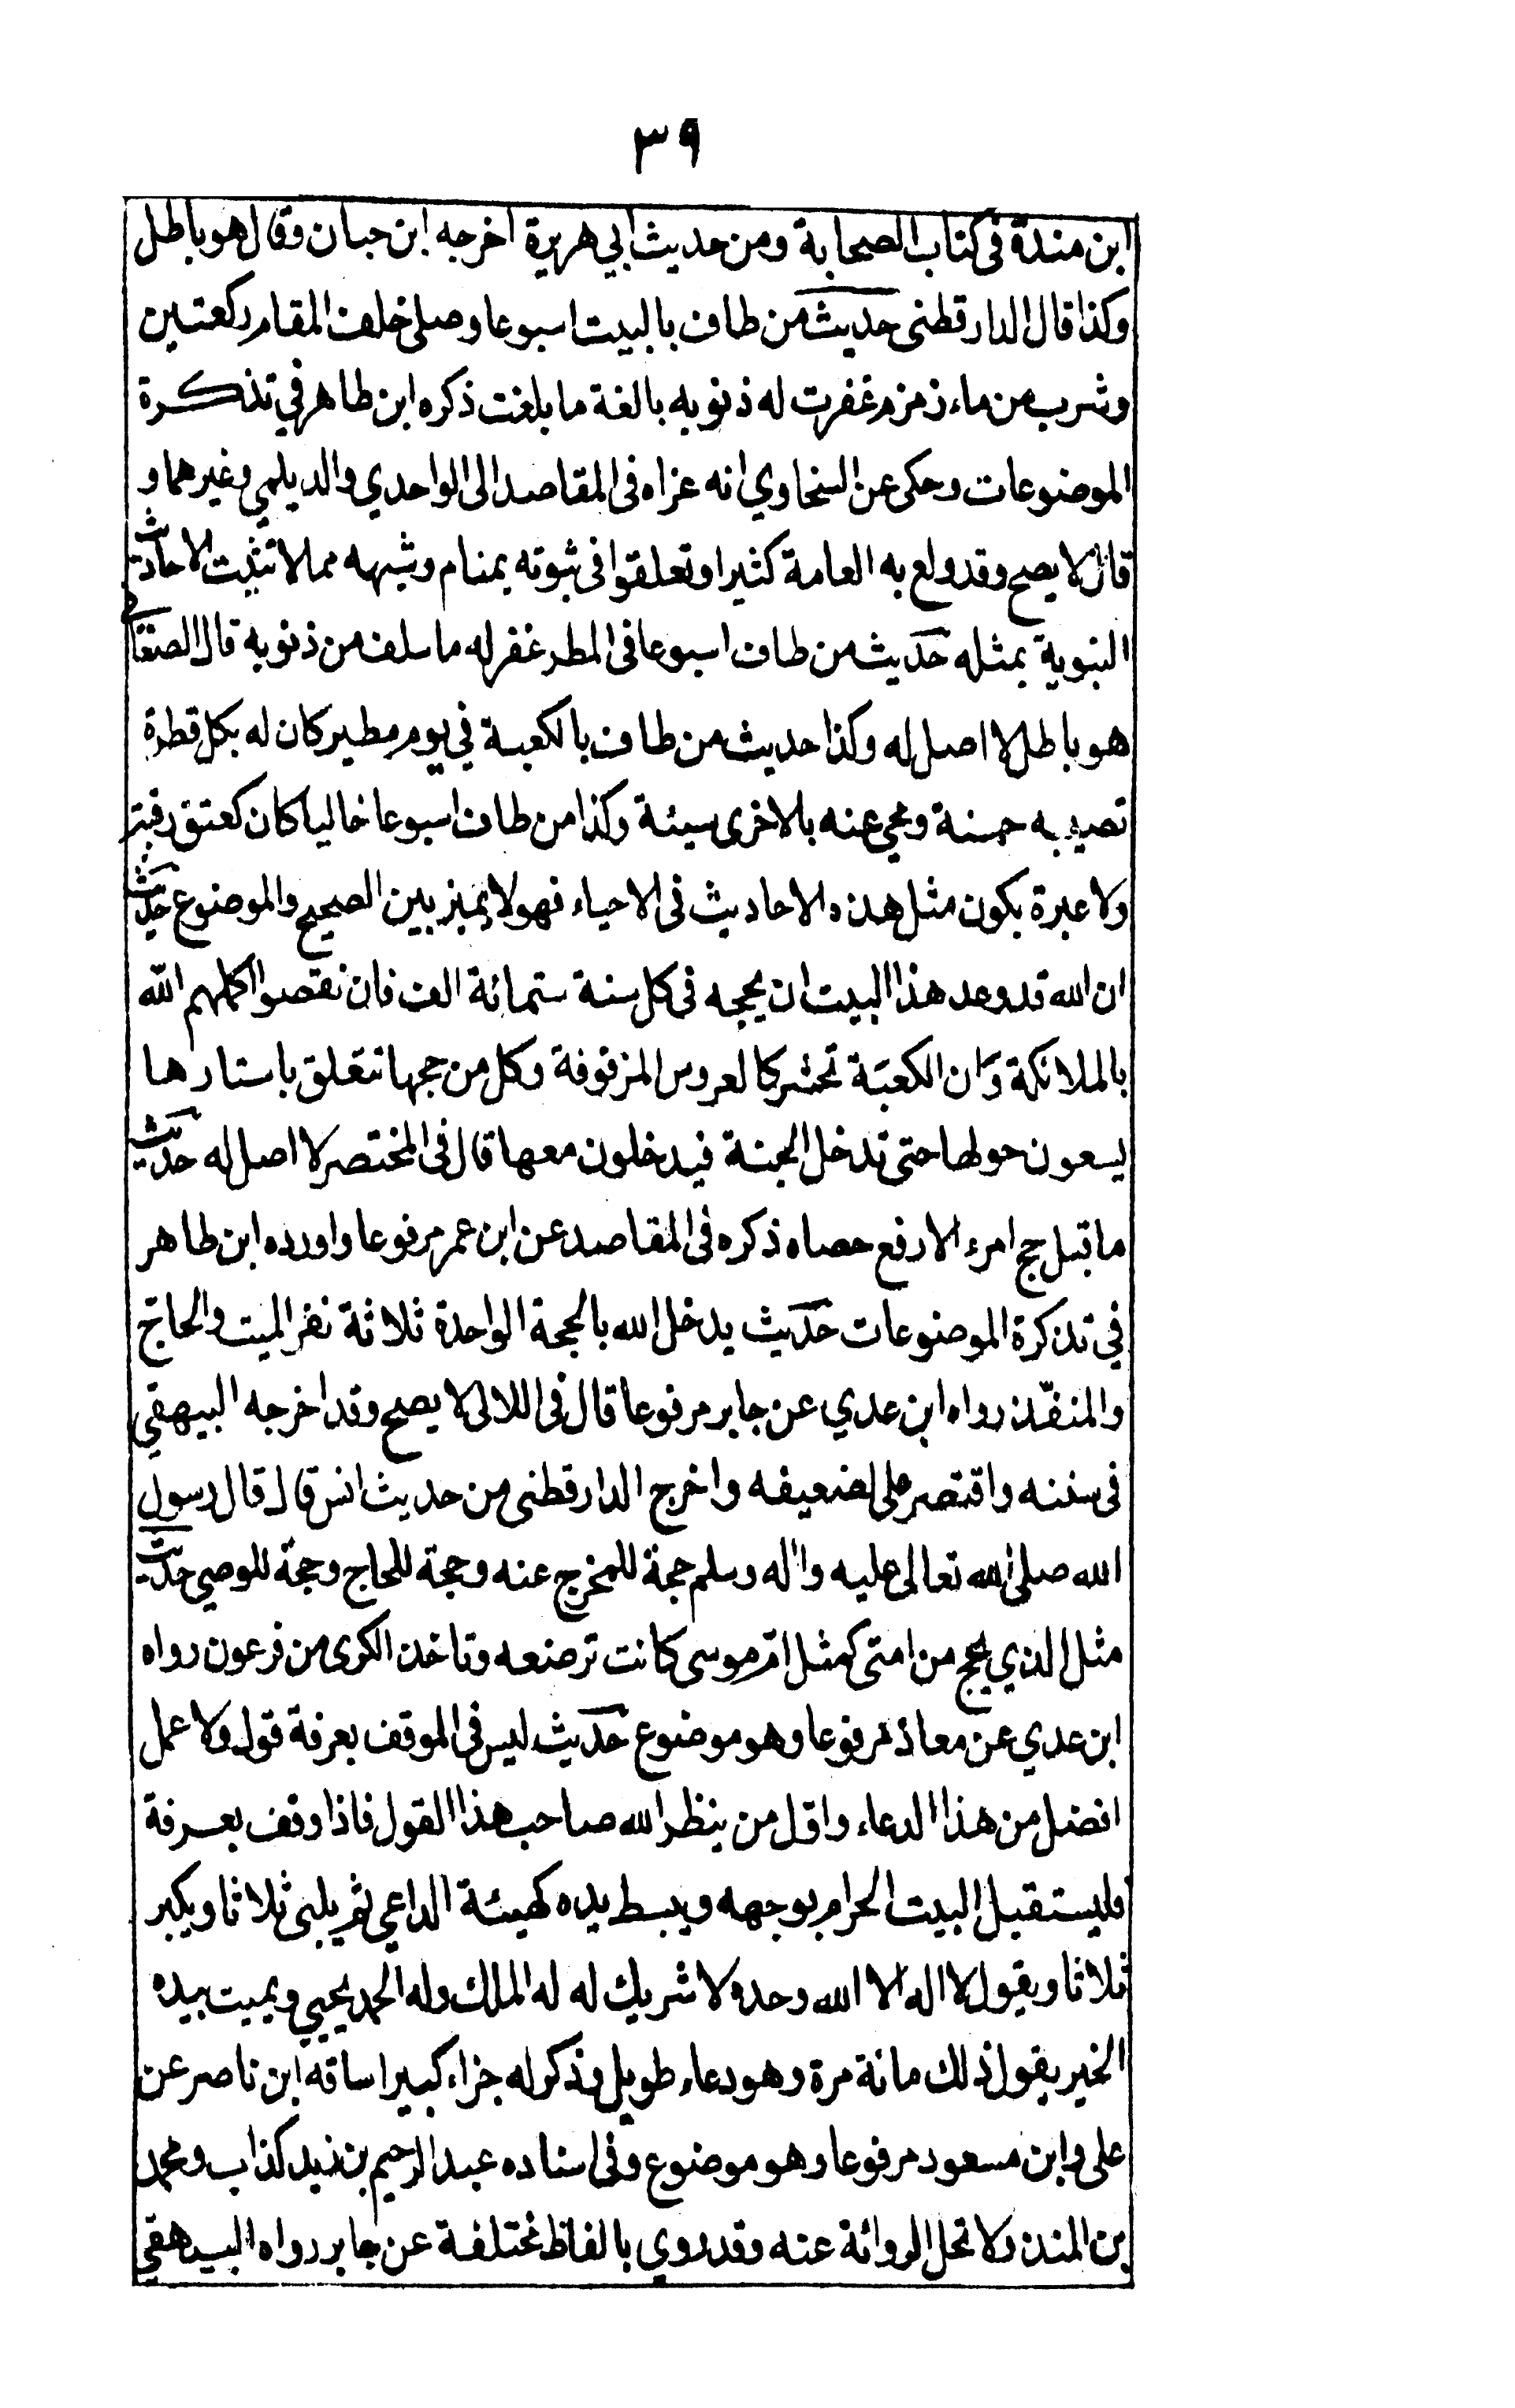 ٣٩
ابن مندة فى كتاب الصحابة ومن حديث ابي هريرة اخرجه ابن حبان وقال هو باطل
وكذا قال الدارقطنى حديث من طاف بالبيت اسبوعا وصلى خلف المقام ركعتين
وشرب من ماء زمزم غفرت له ذنوبه بالغة ما بلغت ذكره ابن طاهر في تذكرة
الموضوعات وحكى عن السخاوي انه عزاه فى المقاصد الى الواحدي والديلمي وغيرهما و
قال لا يصح وقد ولع به العامة كثيرا وتعلقوا فى ثبوته بمنام وشبهه مما لا تثبت الاحاديث
النبوية بمثله حديث من طاف اسبوعا فى المطر غفر له ما سلف من ذنوبه قال الصنعانى
هو باطل لا اصل له وكذا حديث من طاف بالكعبة في يوم مطير كان له بكل قطرة
تصيبه حسنة ومحي عنه بالاخرى سيئة وكذا من طاف اسبوعا خاليا كان كعتق رقبة
ولا عبرة بكون مثل هذه الاحاديث فى الاحياء فهو لا يميز بين الصحيح والموضوع حديث
ان الله قد وعد هذا البيت ان يحجه فى كل سنة ستمائة الف فان نقصوا اكملهم الله
بالملائكة وان الكعبة تحشر كالعروس المزفوفة وكل من حجها تتعلق باستارها
يسعون حولها حتى تدخل الجنة فيدخلون معها قال فى المختصر لا اصل له حديث
ما قبل حج امرء الا رفع حصاه ذكره فى المقاصد عن ابن عمر مرفوعا واورده ابن طاهر
في تذكرة الموضوعات حديث يدخل الله بالحجة الواحدة ثلاثة نفر الميت والحاج
والمنفّذ رواه ابن عدي عن جابر مرفوعا قال فى اللالى لا يصح وقد اخرجه البيهقي
فى سننه واقتصر على لضعيفه واخرج الدارقطنى من حديث انس قال قال رسول
الله صلى الله تعالى عليه واله وسلم حجة للمخرج عنه وحجة للحاج وحجة للوصي حديث
مثل الذي يحج من امتى كمثل امّ موسى كانت ترضعه وتاخذ الكرى من فرعون رواه
ابن عدي عن معاذ مرفوعا وهو موضوع حديث ليس فى الموقف بعرفة قول ولا عمل
افضل من هذا الدعاء واقل من ينظر الله صاحب هذا القول فاذا وقف بعرفة
فليستقبل البيت الحرام بوجهه ويبسط يده كهيئة الداعي ثم يلبى ثلاثا ويكبر
ثلاثا ويقول لا اله الا الله وحده لا شريك له له الملك وله الحمد يحيي ويميت بيده
الخير يقول ذلك مائة مرة وهو دعاء طويل وذكر له جزاء كبيرا ساقه ابن ناصر عن
على وابن مسعود مرفوعا وهو موضوع وفى اسناده عبد الرحيم بن زيد كذاب ومحمد
بن المنذر ولا تحل الروائة عنه وقد روي بالفاظ مختلفة عن جابر رواه البيهقي